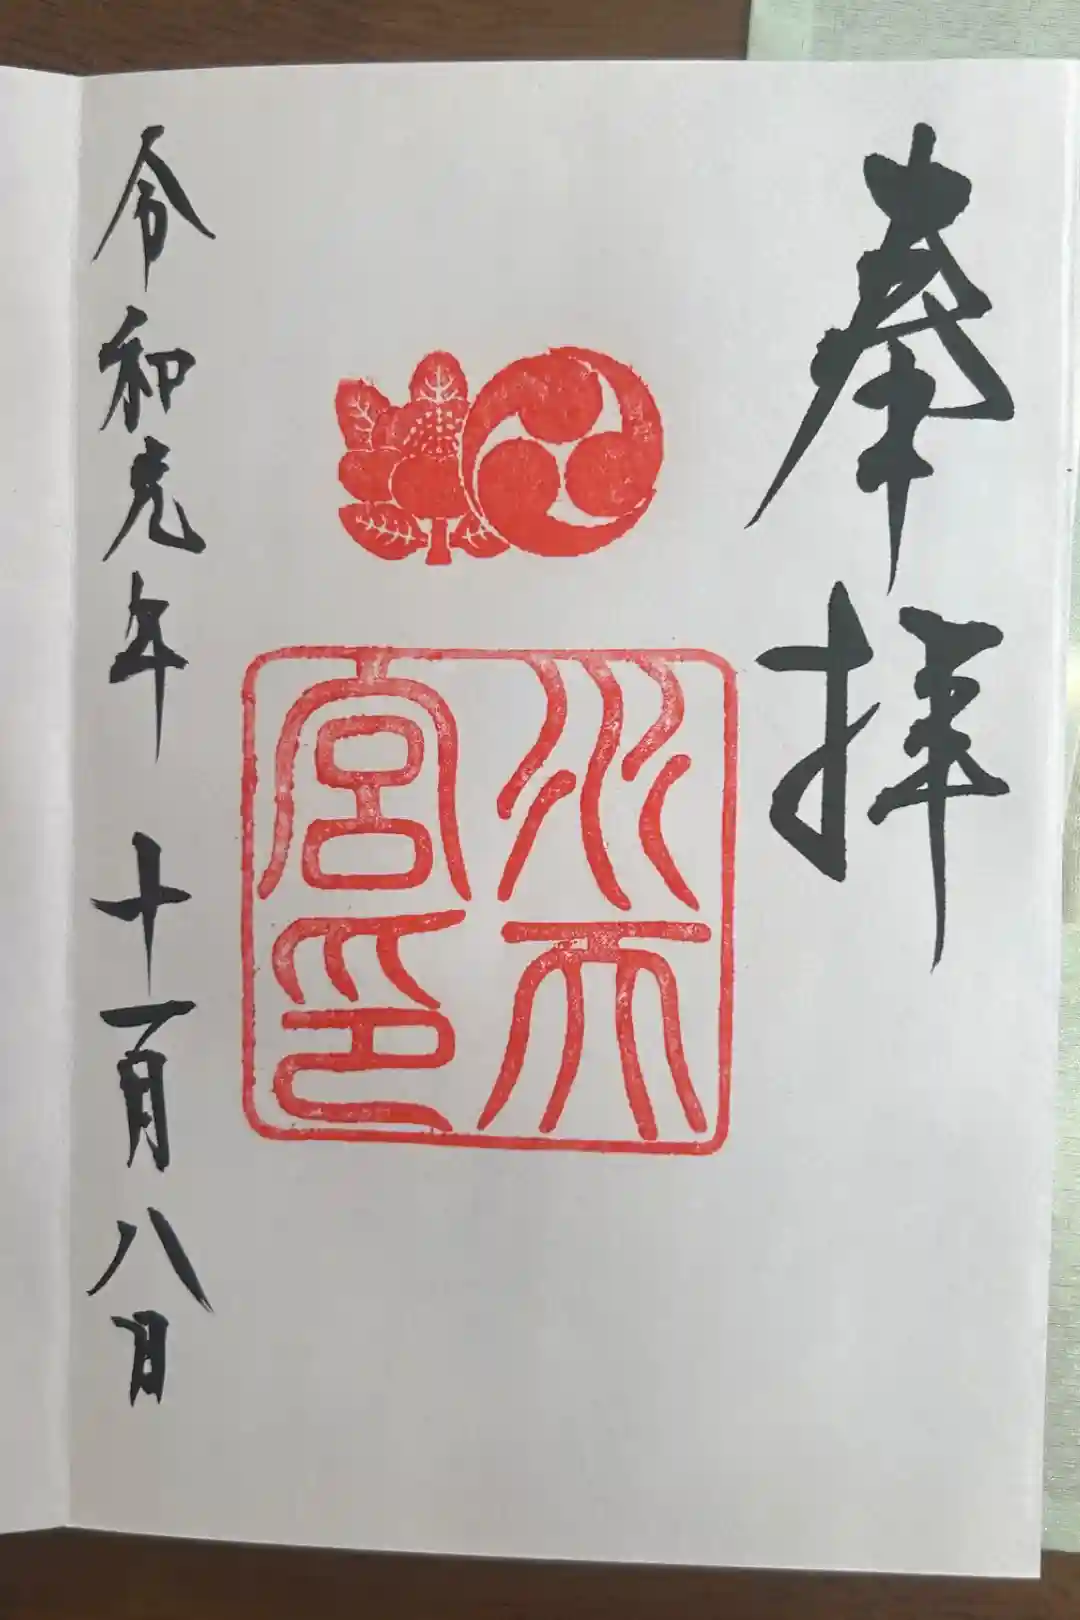 奉拝
水天
宮印
令和元年 十一月八日